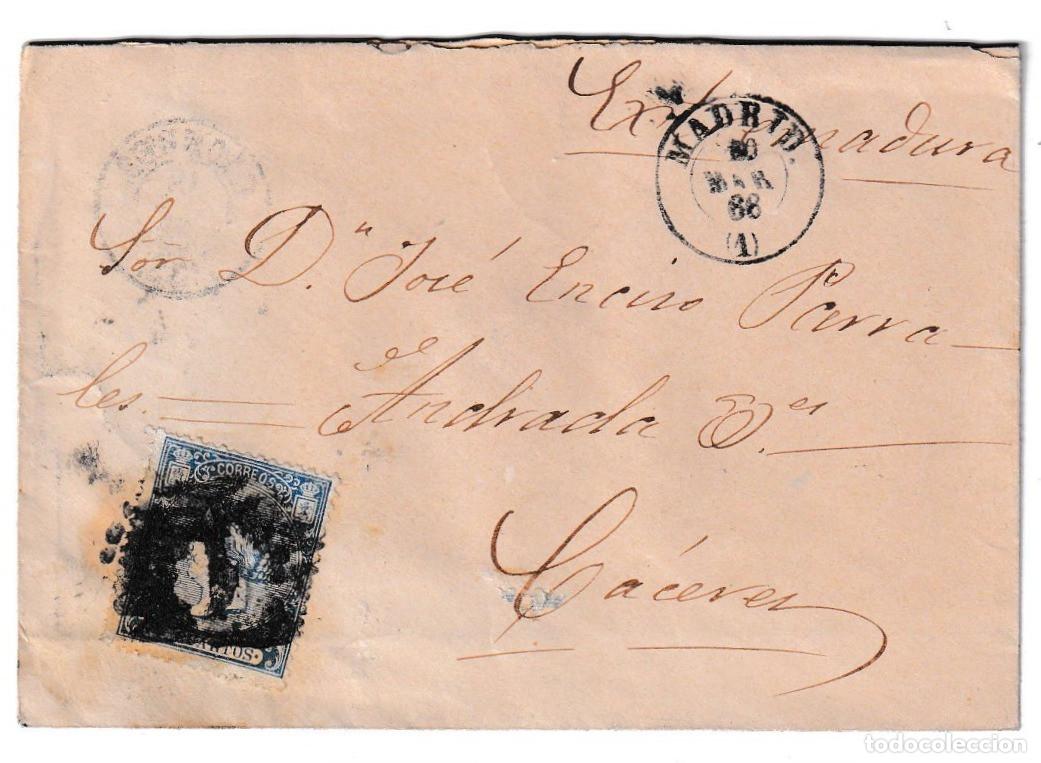 Extremadura
MADRID.
MAR
66
(1)
Sor D.n José Enciso Parra—
les.
Andrada
Cáceres
CORREOS
todocoleccion